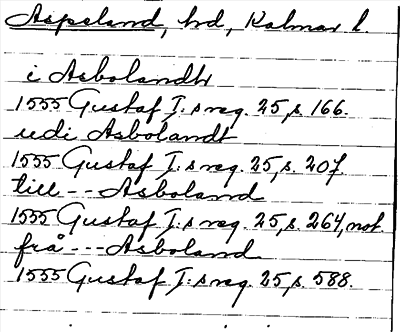 Aspeland, hd, Kalmar l.
i Asbolandh
1555 Gustaf I:s reg. 25, s. 166.
udi Asbolandt
1555 Gustaf I:s reg. 25, s. 207.
till --- Asboland
1555 Gustaf I:s reg. 25, s. 264, not.
frå --- Asboland
1555 Gustaf I:s reg. 25, s. 588.